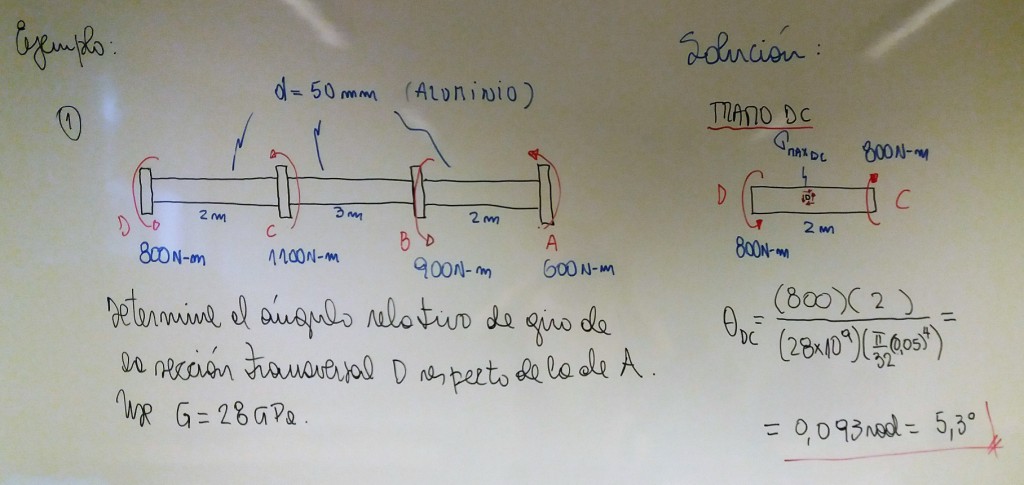 Ejemplo:
d = 50 mm (ALUMINIO)
①
2 m
3 m
2 m
D
C
B
A
800N-m
1100N-m
900N-m
600N-m
Determine el ángulo relativo de giro de
la sección transversal D respecto de la de A.
Use G = 28 GPa.
Solución:
TRAMO DC
τMAX DC
800N-m
D
C
2 m
800N-m
θDC = (800)(2) / (28x10⁹)(π/32 (0,05)⁴) =
= 0,093 rad = 5,3°